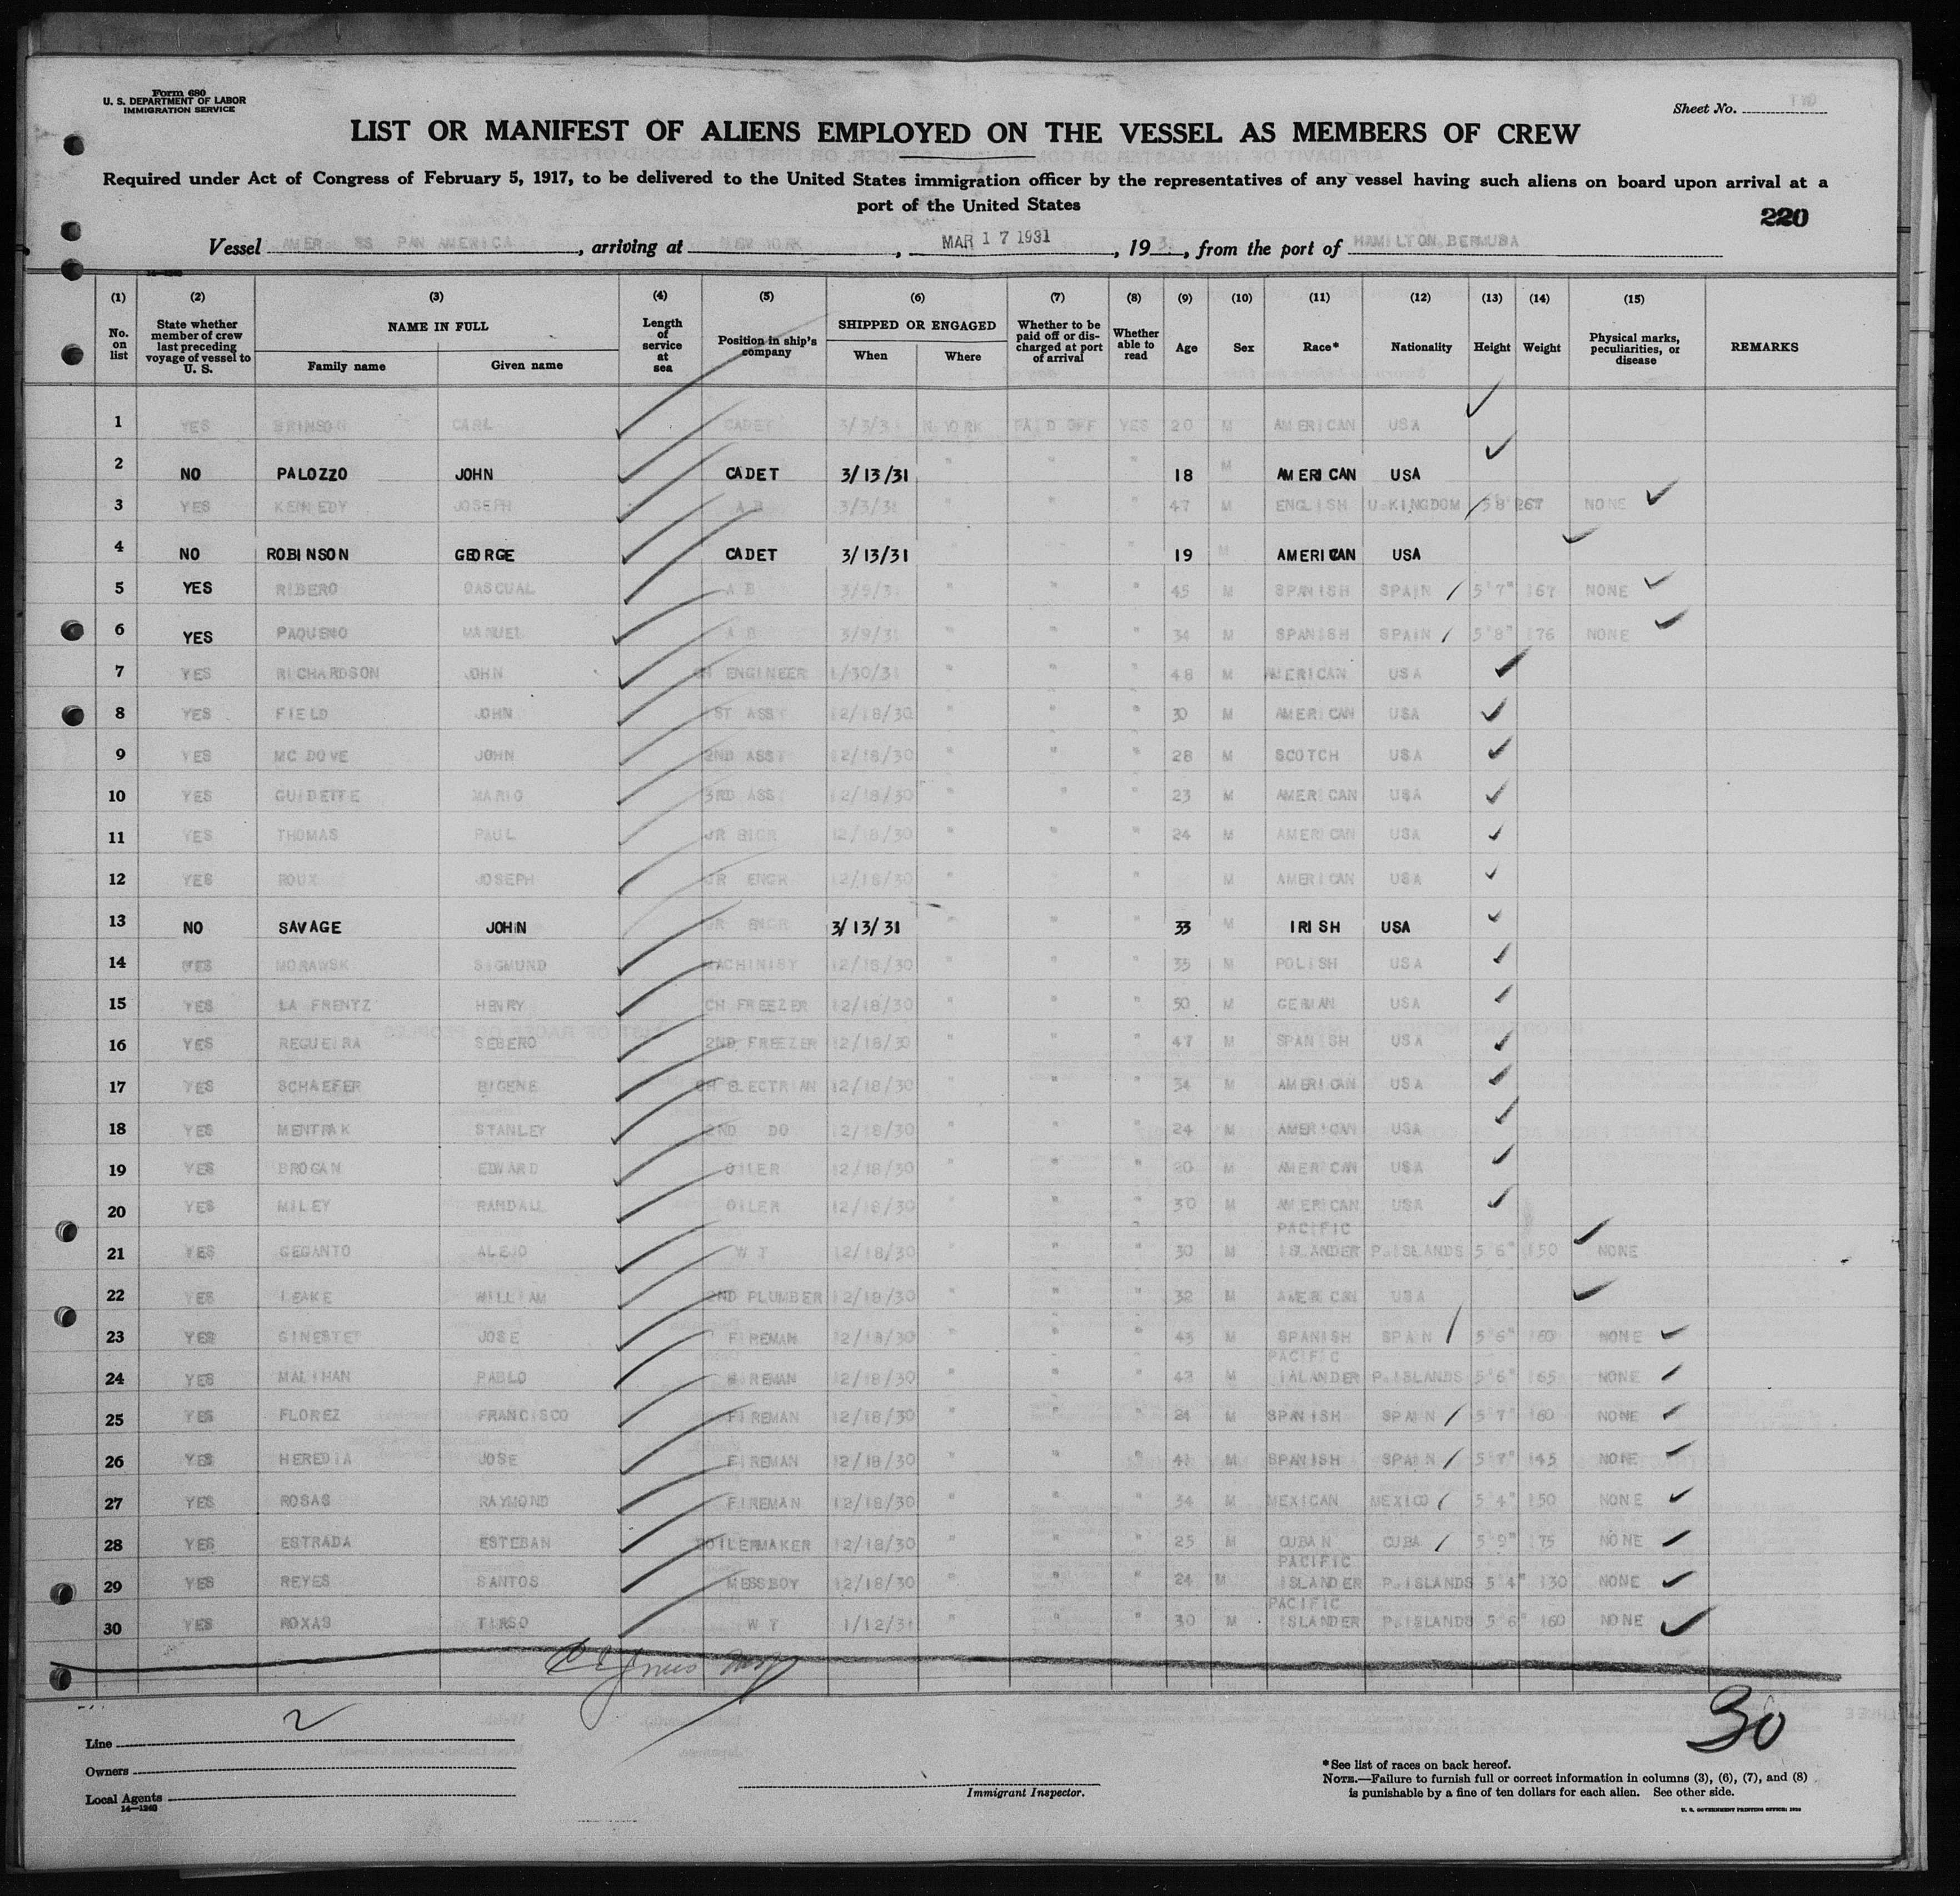 Form 680
U. S. DEPARTMENT OF LABOR
IMMIGRATION SERVICE
Sheet No.
LIST OR MANIFEST OF ALIENS EMPLOYED ON THE VESSEL AS MEMBERS OF CREW
Required under Act of Congress of February 5, 1917, to be delivered to the United States immigration officer by the representatives of any vessel having such aliens on board upon arrival at a
port of the United States
220
Vessel AMER. SS PAN AMERICA, arriving at NEW YORK, MAR 17 1931, 193, from the port of HAMILTON BERMUDA
(1) (2) (3) (4) (5) (6) (7) (8) (9) (10) (11) (12) (13) (14) (15)
No. on list
State whether member of crew last preceding voyage of vessel to U. S.
NAME IN FULL
Family name Given name
Length of service at sea
Position in ship's company
SHIPPED OR ENGAGED
When Where
Whether to be paid off or discharged at port of arrival
Whether able to read
Age Sex Race* Nationality Height Weight
Physical marks, peculiarities, or disease
REMARKS
1 YES BRINSON CARL CADET 3/3/3 N YORK PAID OFF YES 20 M AMERICAN USA
2 NO PALOZZO JOHN CADET 3/13/31 " " " 18 M AMERICAN USA
3 YES KENNEDY JOSEPH A B 3/3/31 " " " 47 M ENGLISH U.KINGDOM 5 8" 267 NONE
4 NO ROBINSON GEORGE CADET 3/13/31 " " " 19 M AMERICAN USA
5 YES RIBERO PASCUAL A B 3/9/31 " " " 45 M SPANISH SPAIN 5"7" 167 NONE
6 YES PAQUENO MANUEL A B 3/9/31 " " " 34 M SPANISH SPAIN 5"8" 176 NONE
7 YES RICHARDSON JOHN CH ENGINEER 1/30/31 " " " 48 M AMERICAN USA
8 YES FIELD JOHN 1ST ASST 12/18/30 " " " 30 M AMERICAN USA
9 YES MC DOVE JOHN 2ND ASST 12/18/30 " " " 28 M SCOTCH USA
10 YES GUIDETTE MARIO 3RD ASS 12/18/30 " " " 23 M AMERICAN USA
11 YES THOMAS PAUL JR ENGR 12/18/30 " " " 24 M AMERICAN USA
12 YES ROUX JOSEPH JR ENGR 12/18/30 " " " M AMERICAN USA
13 NO SAVAGE JOHN JR ENGR 3/13/31 " " " 33 M IRISH USA
14 YES MORAWSK SIGMUND MACHINIST 12/18/30 " " " 35 M POLISH USA
15 YES LA FRENTZ HENRY CH FREEZER 12/18/30 " " " 50 M GERMAN USA
16 YES REGUEIRA SEBERO 2ND FREEZER 12/18/30 " " " 47 M SPANISH USA
17 YES SCHAEFER EIGENE CH ELECTRIAN 12/18/30 " " " 34 M AMERICAN USA
18 YES MENTRAK STANLEY 2ND DO 12/18/30 " " " 24 M AMERICAN USA
19 YES BROGAN EDWARD OILER 12/18/30 " " " 20 M AMERICAN USA
20 YES MILEY RANDALL OILER 12/18/30 " " " 30 M AMERICAN USA
21 YES GEGANTO ALEJO W T 12/18/30 " " " 30 M PACIFIC ISLANDER P.ISLANDS 5 6" 150 NONE
22 YES LEAKE WILLIAM 2ND PLUMBER 12/18/30 " " " 32 M AMERICAN USA
23 YES GINESTET JOSE FIREMAN 12/18/30 " " " 43 M SPANISH SPAIN 5"6" 160 NONE
24 YES MALIHAN PABLO FIREMAN 12/18/30 " " " 42 M PACIFIC IALANDER P.ISLANDS 5"6" 165 NONE
25 YES FLOREZ FRANCISCO FIREMAN 12/18/30 " " " 24 M SPANISH SPAIN 5"7" 160 NONE
26 YES HEREDIA JOSE FIREMAN 12/18/30 " " " 41 M SPANISH SPAIN 5"7" 145 NONE
27 YES ROSAS RAYMOND FIREMAN 12/18/30 " " " 34 M MEXICAN MEXICO 5"4" 150 NONE
28 YES ESTRADA ESTEBAN BOILERMAKER 12/18/30 " " " 25 M CUBAN CUBA 5"9" 175 NONE
29 YES REYES SANTOS MESSBOY 12/18/30 " " " 24 M PACIFIC ISLANDER P.ISLANDS 5 4" 130 NONE
30 YES ROXAS TIRSO W T 1/12/31 " " " 30 M PACIFIC ISLANDER P.ISLANDS 5 6" 160 NONE
30
Line 2
Owners
Local Agents
14—1240
Immigrant Inspector.
*See list of races on back hereof.
NOTE.—Failure to furnish full or correct information in columns (3), (6), (7), and (8)
is punishable by a fine of ten dollars for each alien. See other side.
U. S. GOVERNMENT PRINTING OFFICE: 1929